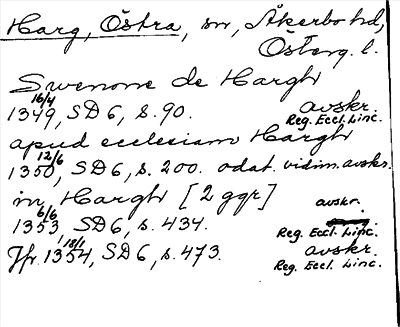 Harg, Östra, sn, Åkerbo hd,
Österg. l.
Swenone de Hargh
16/4
1349, SD 6, s. 90. avskr.
Reg. Eccl. Linc.
apud ecclesiam Hargh
12/6
1350, SD 6, s. 200. odat. vidim. avskr.
in Hargh [2 ggr] avskr.
6/6
1353, SD 6, s. 434. Reg. Eccl. Linc.
Jfr. 1354, 18/1 SD 6, s. 473. avskr.
Reg. Eccl. Linc.